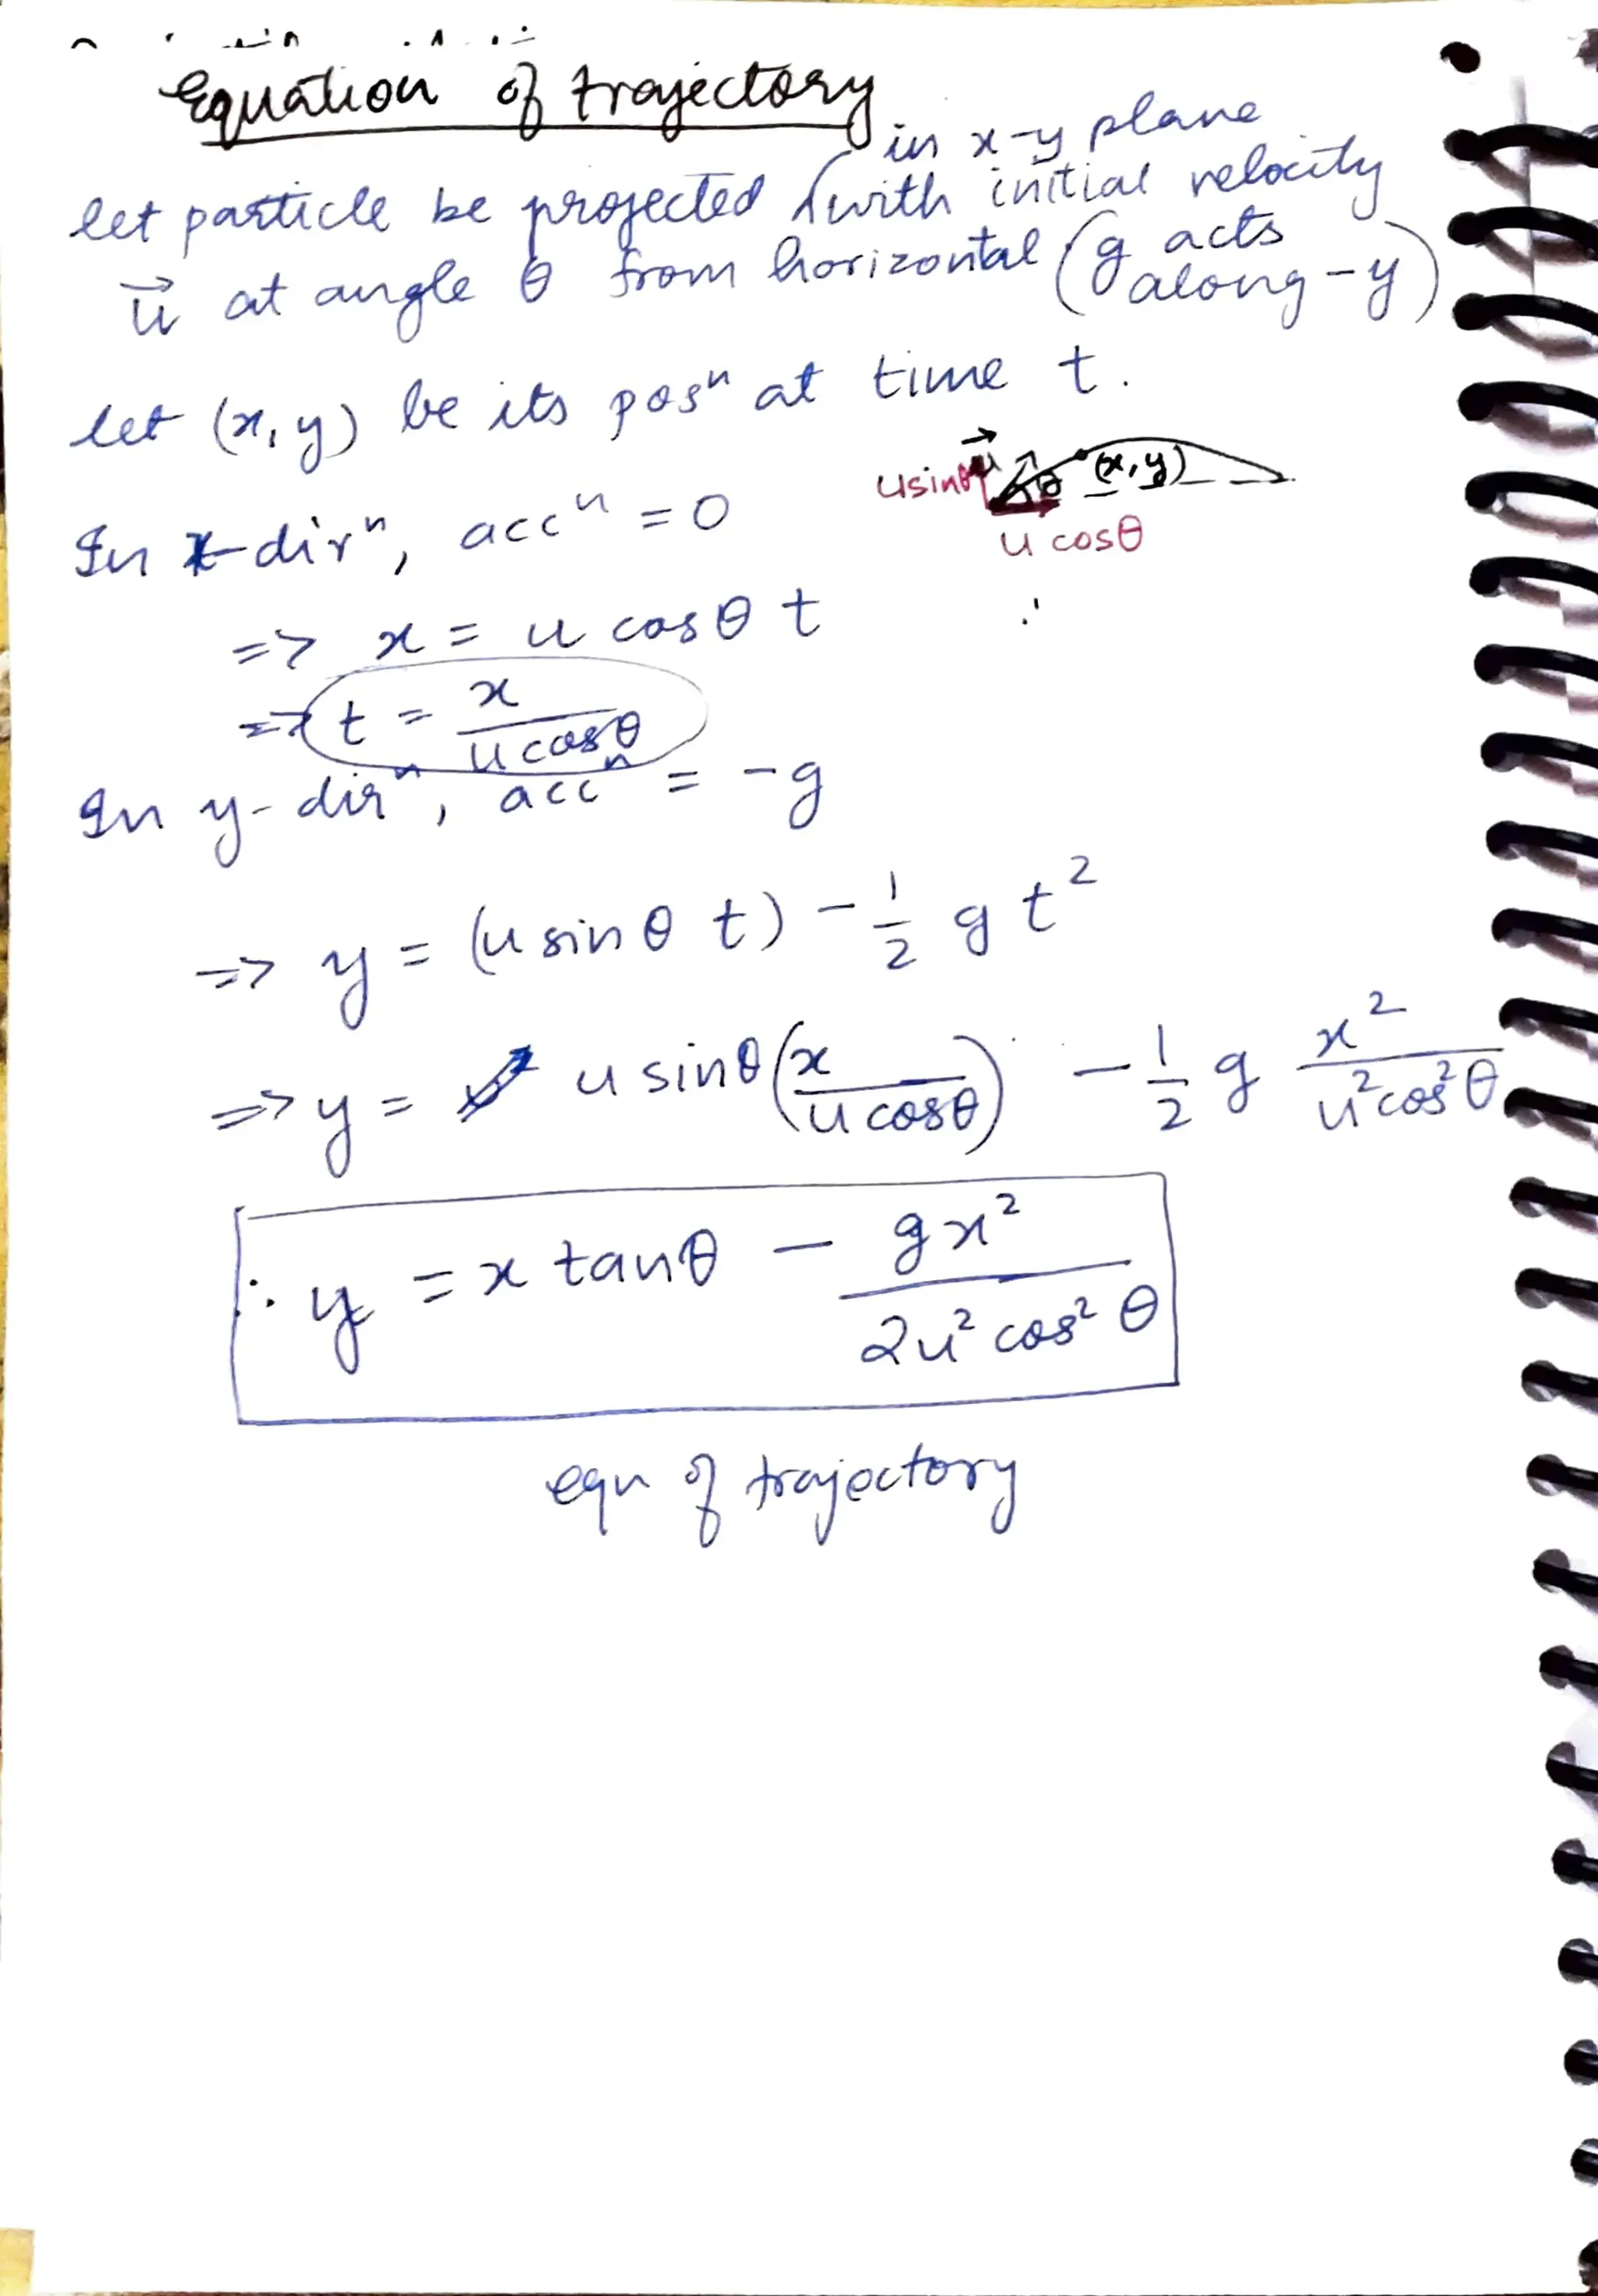 Equation of trajectory
in x-y plane
let particle be projected with initial velocity
u⃗ at angle θ from horizontal (g acts along -y)
let (x, y) be its posⁿ at time t.
u⃗ θ (x, y)
usinθ
u cosθ
In x-dirⁿ, accⁿ = 0
=> x = u cosθ t
∴
=> t = x / u cosθ
In y-dirⁿ, accⁿ = -g
=> y = (u sinθ t) - 1/2 g t²
=> y = u sinθ (x / u cosθ) - 1/2 g x² / u² cos² θ
∴ y = x tanθ - g x² / 2u² cos² θ
eqn of trajectory